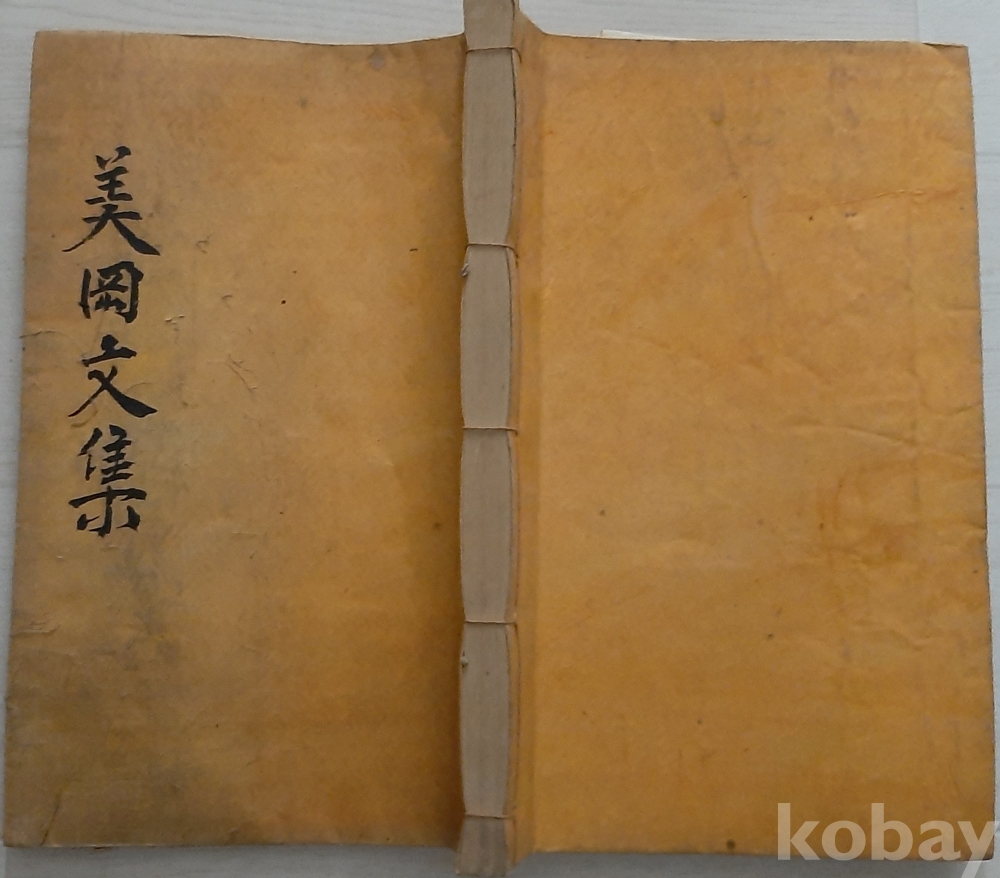 美岡文集
kobay